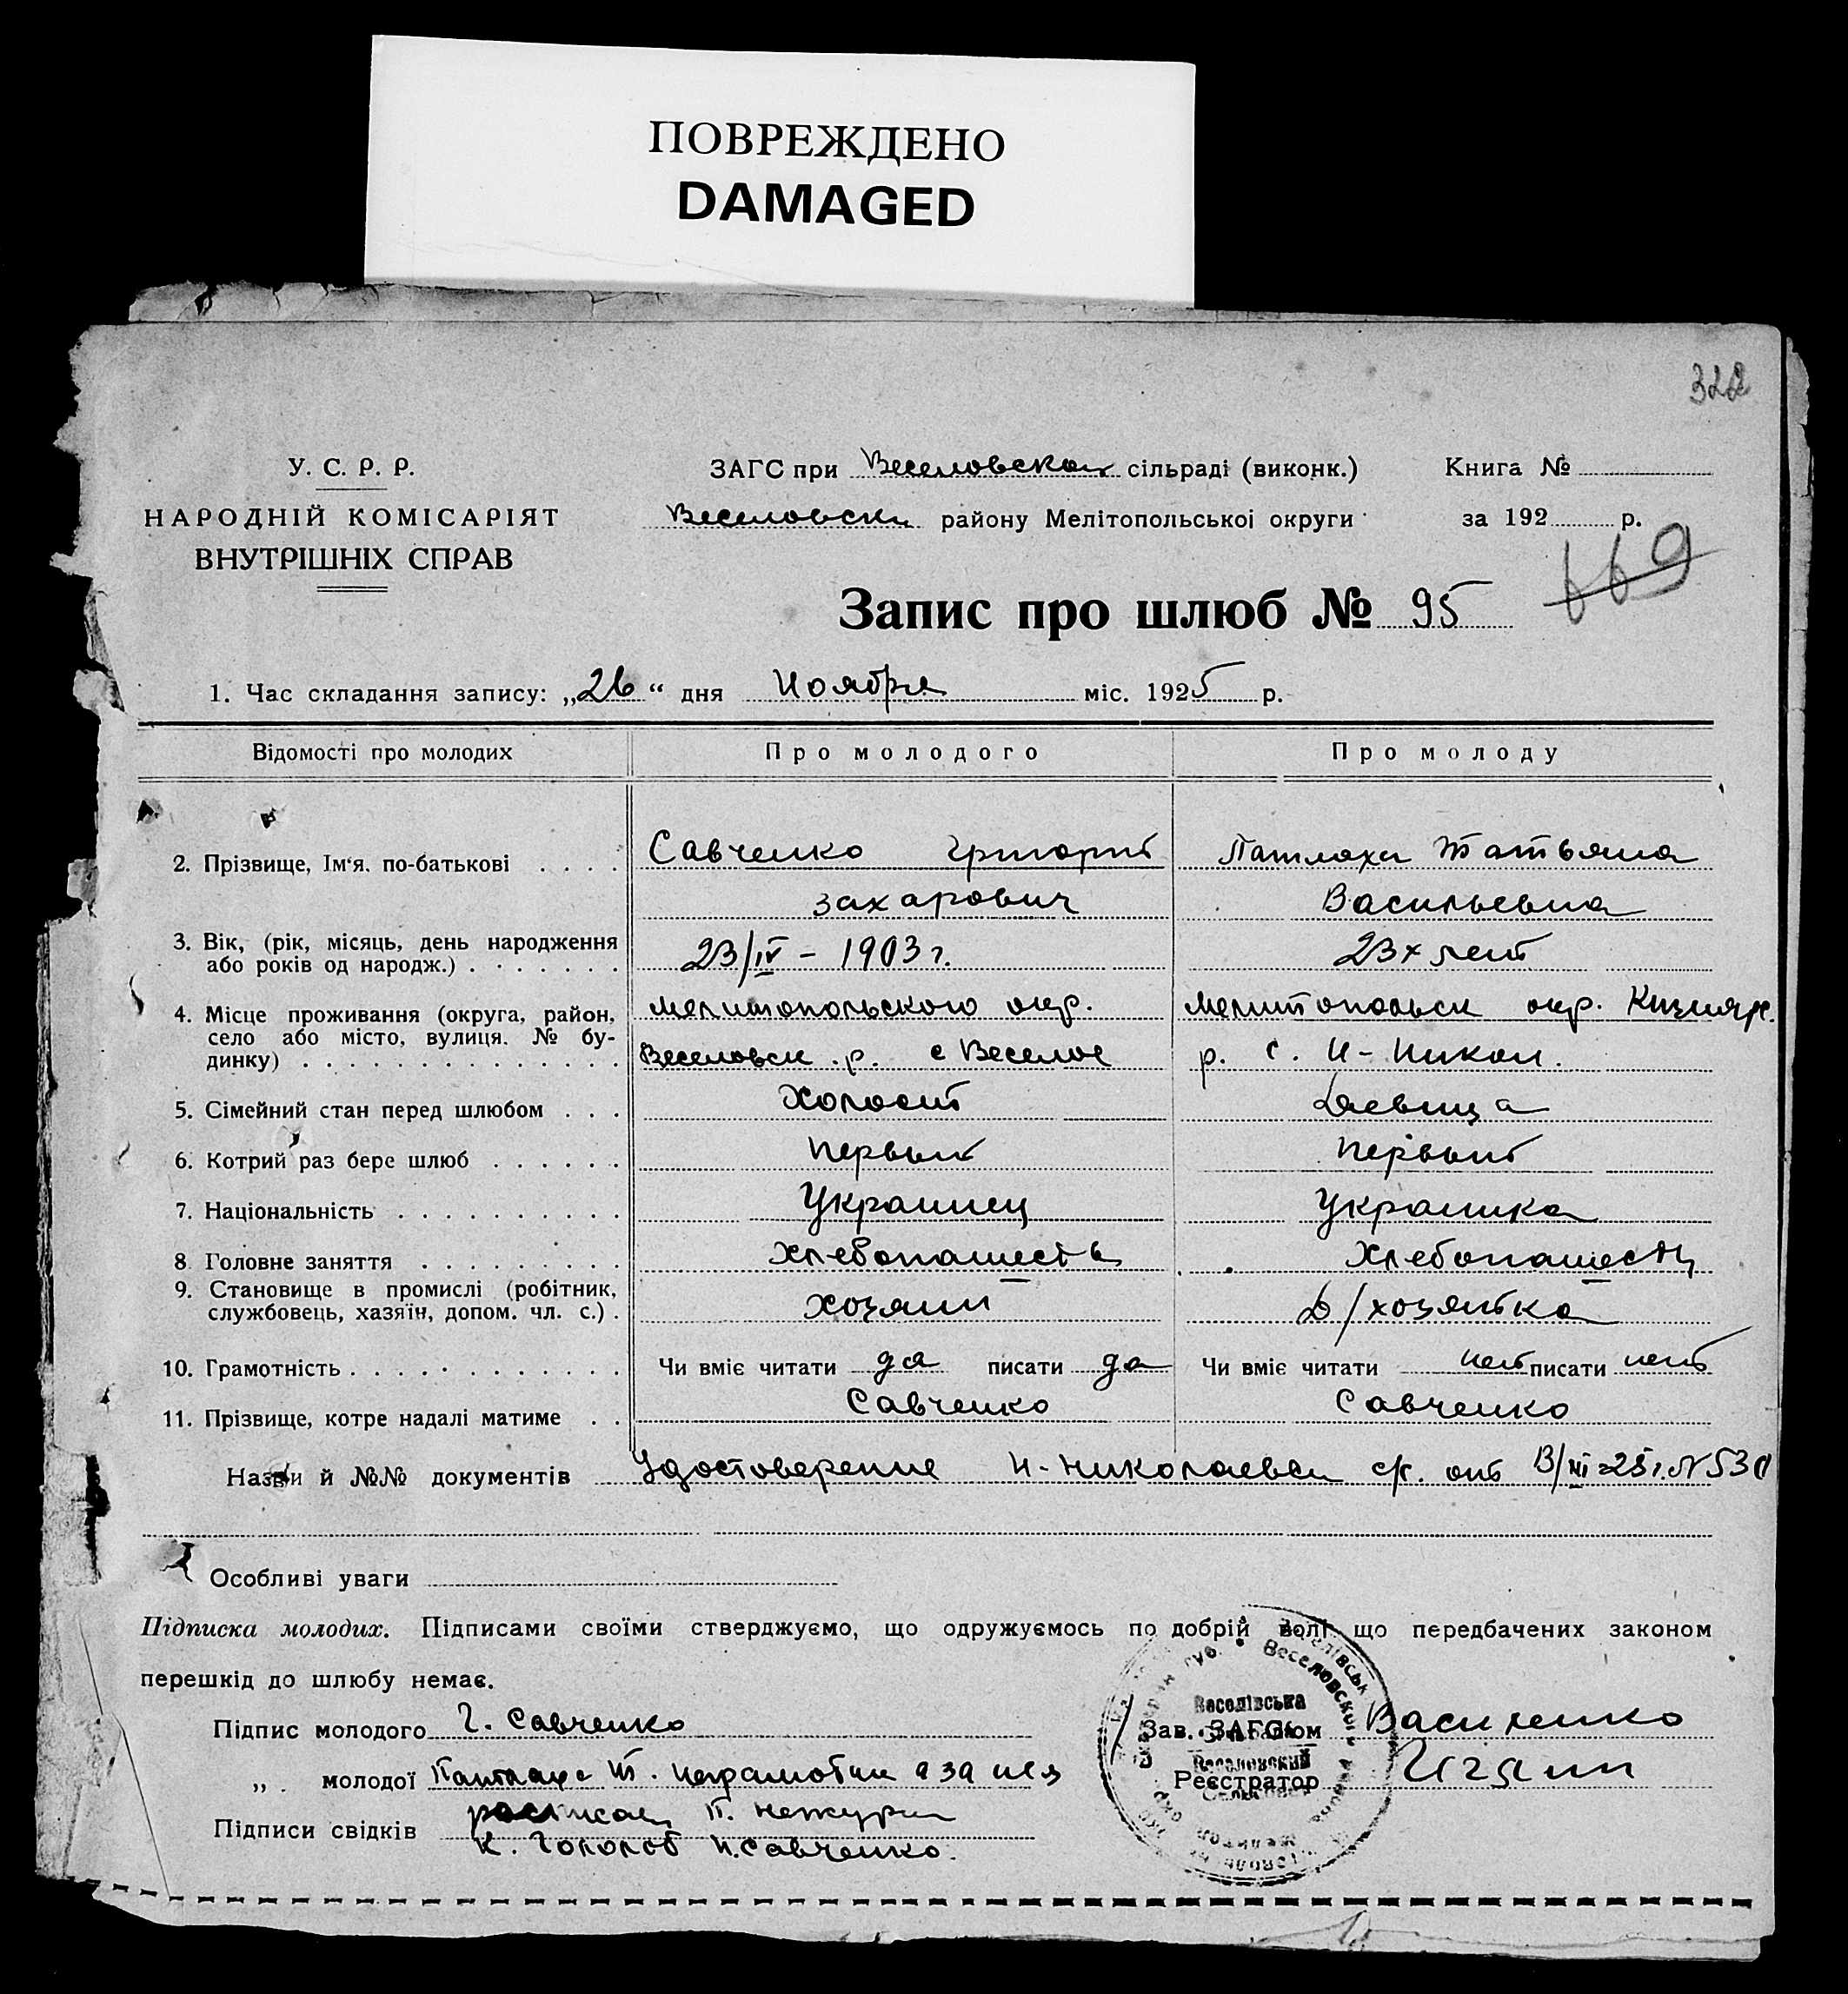 ПОВРЕЖДЕНО
DAMAGED
322
У. С. Р. Р.
НАРОДНІЙ КОМІСАРІЯТ
ВНУТРІШНІХ СПРАВ
ЗАГС при Веселовском сільраді (виконк.)
Книга №
Веселовски району Мелітопольської округи
за 192 р.
669
Запис про шлюб № 95
1. Час складання запису: „26“ дня Ноября міс. 1925 р.
Відомості про молодих
Про молодого
Про молоду
2. Прізвище, Ім'я, по-батькові
Савченко Григорий
Захарович
Татьяна
Васильевна
3. Вік, (рік, місяць, день народження
або років од народж.)
23/IV - 1903 г.
23х лет
4. Місце проживання (округа, район,
село або місто, вулиця, № бу-
динку)
Мелитопольского окр.
Веселовск. р. с Веселое
Мелитопольск окр.
р. с. Н-Никол.
5. Сімейний стан перед шлюбом
Холост
Девица
6. Котрий раз бере шлюб
Первый
Первый
7. Національність
Украинец
Украинка
8. Головне заняття
Хлебопашеств
Хлебопашеств
9. Становище в промислі (робітник,
службовець, хазяїн, допом. чл. с.)
Хозяин
Д/хозяйка
10. Грамотність
Чи вміє читати да писати да
Чи вміє читати нет писати нет
11. Прізвище, котре надалі матиме
Савченко
Савченко
Назви й №№ документів Удостоверение Н-Николаевск с/с. от 13/XI-25 г. N 530
Особливі уваги
Підписка молодих. Підписами своїми стверджуємо, що одружуємось по добрій волі що передбачених законом
перешкід до шлюбу немає.
Підпис молодого Г. Савченко
Зав. ЗАГС'ом Василенко
„ молодої Т. неграмотна а за нея
Реєстратор
расписал П.
Підписи свідків
К. Гололоб И. Савченко.
Веселівська
Веселовский
Сельсовет